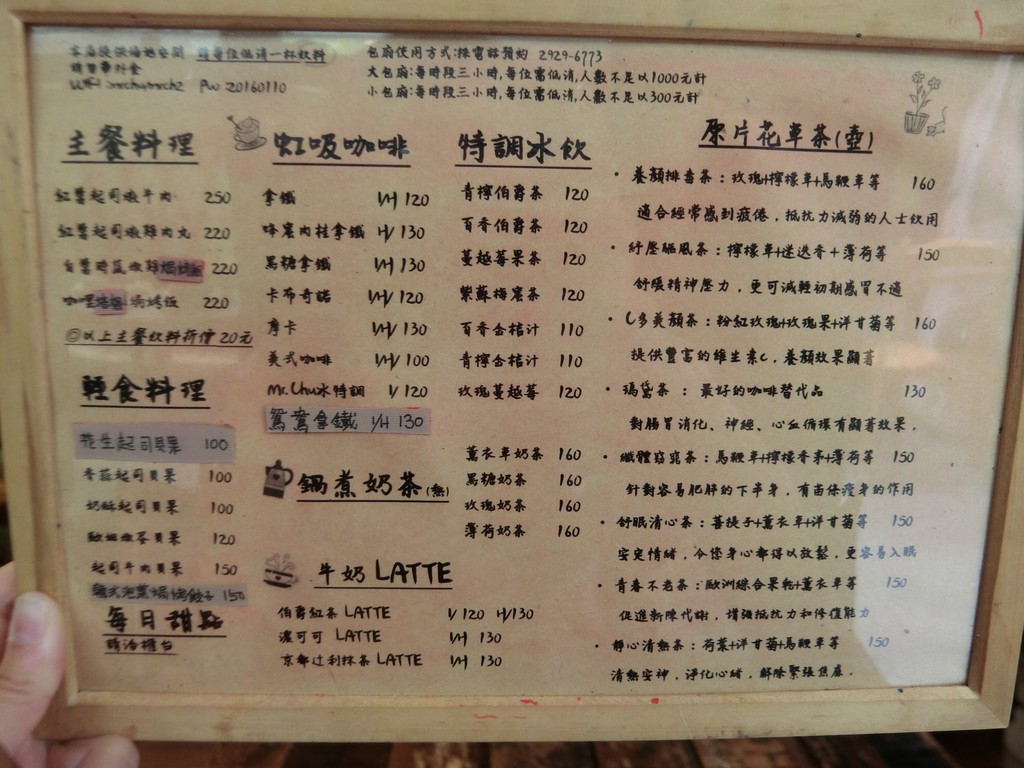 本店提供場地空間 請每位低消一杯飲料
請勿帶外食
WiFi :mrchumrch2 Pw 20160110
包廂使用方式:採電話預約 2929-6773
大包廂:每時段三小時,每位需低消,人數不足以1000元計
小包廂:每時段三小時,每位需低消,人數不足以300元計
主餐料理
紅醬起司嫩牛肉 250
紅醬起司嫩雞肉丸 220
白醬時蔬嫩雞焗烤飯 220
咖哩 焗烤飯 220
◎以上主餐飲料折價20元
輕食料理
花生起司貝果 100
香蒜起司貝果 100
奶酥起司貝果 100
歐姆嫩蛋貝果 120
起司牛肉貝果 150
韓式泡菜焗烤餃子 150
每日甜點
請洽櫃台
虹吸咖啡
拿鐵 I/H 120
蜂蜜肉桂拿鐵 H/ 130
黑糖拿鐵 I/H 130
卡布奇諾 I/H 120
摩卡 I/H 130
美式咖啡 I/H 100
Mr.Chu冰特調 I/ 120
鴛鴦拿鐵 I/H 130
鍋煮奶茶(熱)
薰衣草奶茶 160
黑糖奶茶 160
玫瑰奶茶 160
薄荷奶茶 160
牛奶 LATTE
伯爵紅茶 LATTE I/ 120 H/130
濃可可 LATTE I/H 130
京都辻利抹茶 LATTE I/H 130
特調冰飲
青檸伯爵茶 120
百香伯爵茶 120
蔓越莓果茶 120
紫蘇梅蜜茶 120
百香金桔汁 110
青檸金桔汁 110
玫瑰蔓越莓 120
原片花草茶(壺)
• 養顏排毒茶：玫瑰+檸檬草+馬鞭草等 160
適合經常感到疲倦，抵抗力減弱的人士飲用
• 紓壓驅風茶：檸檬草+迷迭香+薄荷等 150
舒緩精神壓力，更可減輕初期感冒不適
• C多美顏茶：粉紅玫瑰+玫瑰果+洋甘菊等 160
提供豐富的維生素C，養顏效果顯著
• 瑪黛茶 ： 最好的咖啡替代品 130
對腸胃消化、神經、心血循環有顯著效果．
• 纖體窈窕茶：馬鞭草+檸檬香茅+薄荷等 150
針對容易肥胖的下半身，有苗條瘦身的作用
• 舒眠清心茶：菩提子+薰衣草+洋甘菊等 150
安定情緒，令您身心都得以放鬆，更容易入眠
• 青春不老茶：歐洲綜合果乾+薰衣草等 150
促進新陳代謝，增強抵抗力和修復能力
• 靜心清熱茶：荷葉+洋甘菊+馬鞭草等 150
清熱安神，淨化心緒，解除緊張焦慮．